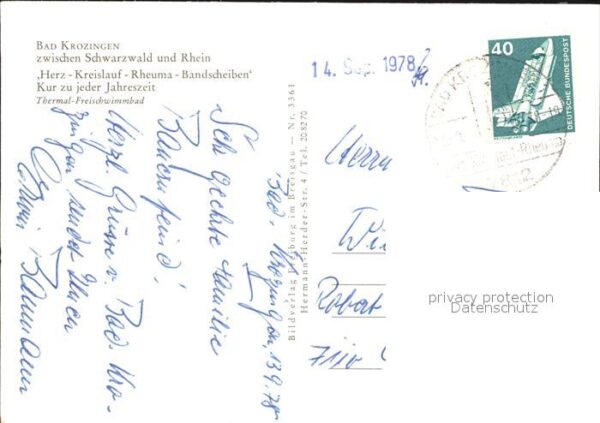 BAD KROZINGEN
zwischen Schwarzwald und Rhein
„Herz - Kreislauf - Rheuma - Bandscheiben“
Kur zu jeder Jahreszeit
Thermal-Freischwimmbad
14. Sep. 1978
40
DEUTSCHE BUNDESPOST
Bildverlag Freiburg im Breisgau — Nr. 3361
Hermann-Herder-Str. 4 / Tel. 208270
Bad Krozingen, 13.9.78
Sehr geehrte Familie
Bauernfeind,
Herzl. Grüsse v. Bad Kro-
zingen sendet Ihnen
Baumann
Herrn
Robert
privacy protection
Datenschutz